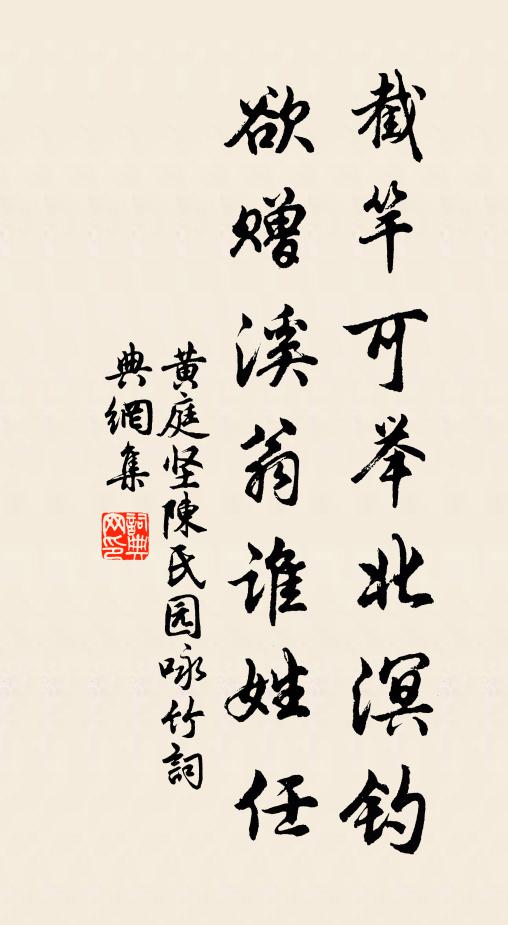 截竿可举北溟钓
欲赠溪翁谁姓任
黄庭坚陳民园咏竹詞
典網集
詞典
网印